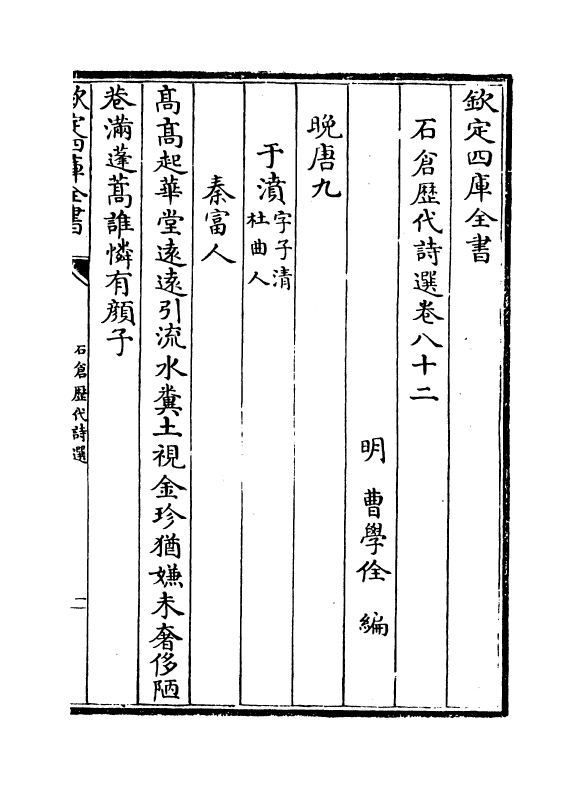 欽定四庫全書
石倉歴代詩選卷八十二
明 曹學佺 編
晚唐九
于濆字子清杜曲人
秦富人
髙髙起華堂逺逺引流水糞土視金珍猶嫌未奢侈陋
巷滿蓬蒿誰憐有顔子
欽定四庫全書
石倉歴代詩選
二